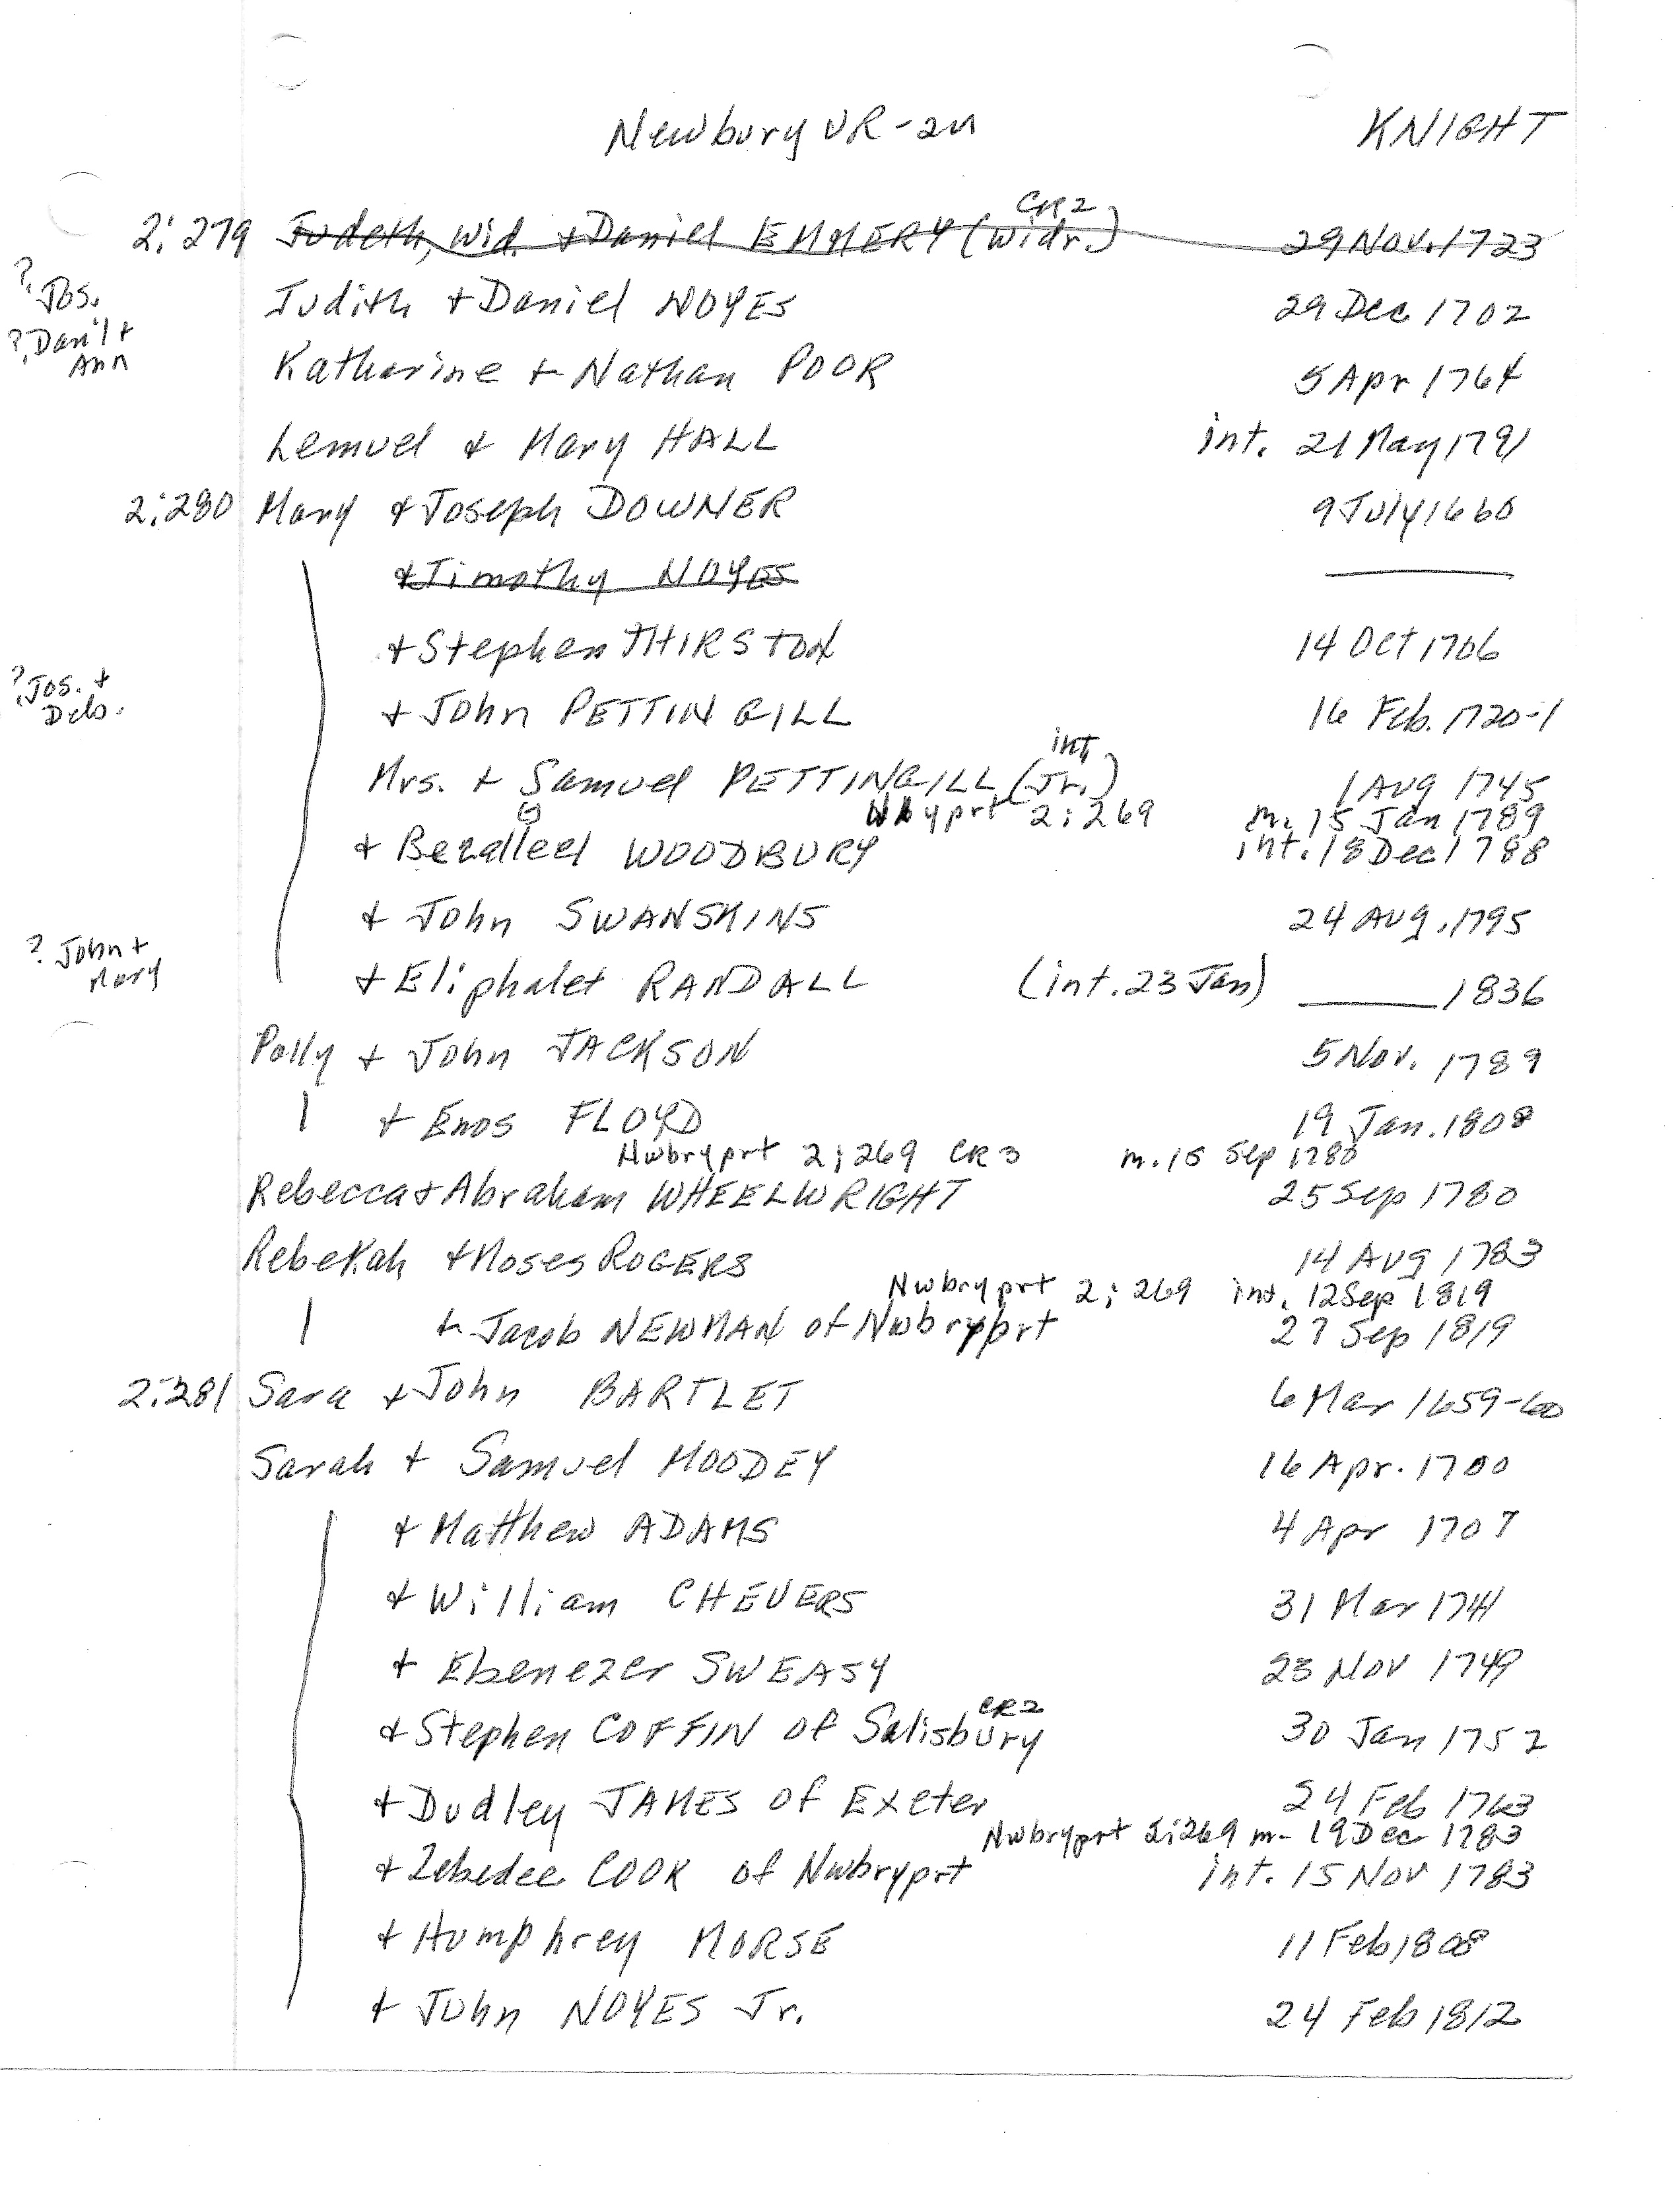 Newbury VR-2M KNIGHT
CR2
2:279 Judeth, Wid. + Daniel EMMERY (Widr.) 29 Nov. 1723
? Jos. Judith + Daniel NOYES 29 Dec 1702
? Dan'l + Ann Katharine + Nathan POOR 5 Apr 1764
Lemuel + Mary HALL int. 21 May 1791
2:280 Mary + Joseph DOWNER 9 July 1660
+ Timothy NOYES
+ Stephen THIRSTON 14 Oct 1706
? Jos. + Deb. + John PETTINGILL 16 Feb. 1720-1
int.
Mrs. + Samuel PETTINGILL (Jr.) 1 Aug 1745
Nbyprt 2:269 m. 15 Jan 1789
+ Bezalleel WOODBURY int. 18 Dec 1788
+ John SWANSKINS 24 Aug. 1795
? John + Mary + Eliphalet RANDALL (int. 23 Jan) ____ 1836
Polly + John JACKSON 5 Nov. 1789
+ Enos FLOYD 19 Jan. 1808
Nwbryprt 2:269 CR3 m. 15 Sep 1780
Rebecca + Abraham WHEELWRIGHT 25 Sep 1780
Rebekah + Moses ROGERS 14 Aug 1783
Nwbryprt 2:269 int. 12 Sep 1819
+ Jacob NEWMAN of Nwbryprt 27 Sep 1819
2:281 Sara + John BARTLET 6 Mar 1659-60
Sarah + Samuel MOODEY 16 Apr. 1700
+ Matthew ADAMS 4 Apr 1707
+ William CHEVERS 31 Mar 1741
+ Ebenezer SWEASY 23 Nov 1749
CR2
+ Stephen COFFIN of Salisbury 30 Jan 1752
+ Dudley JAMES of Exeter 24 Feb 1763
Nwbryprt 2:269 m- 19 Dec 1783
+ Zebedee COOK of Nwbryprt int. 15 Nov 1783
+ Humphrey MORSE 11 Feb 1808
+ John NOYES Jr. 24 Feb 1812